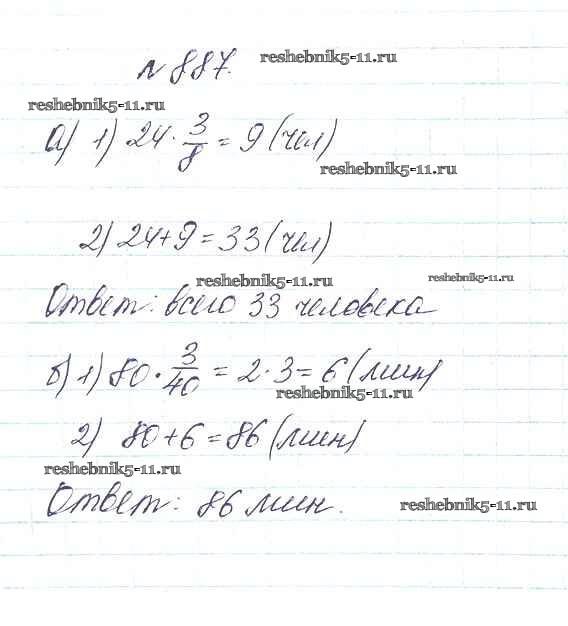 № 887. reshebnik5-11.ru
reshebnik5-11.ru
а) 1) 24 · 3/8 = 9 (чел)
reshebnik5-11.ru
2) 24+9 = 33 (чел)
reshebnik5-11.ru reshebnik5-11.ru
Ответ: всего 33 человека
б) 1) 80 · 3/40 = 2 · 3 = 6 (мин)
reshebnik5-11.ru
2) 80+6 = 86 (мин)
reshebnik5-11.ru
Ответ: 86 мин. reshebnik5-11.ru